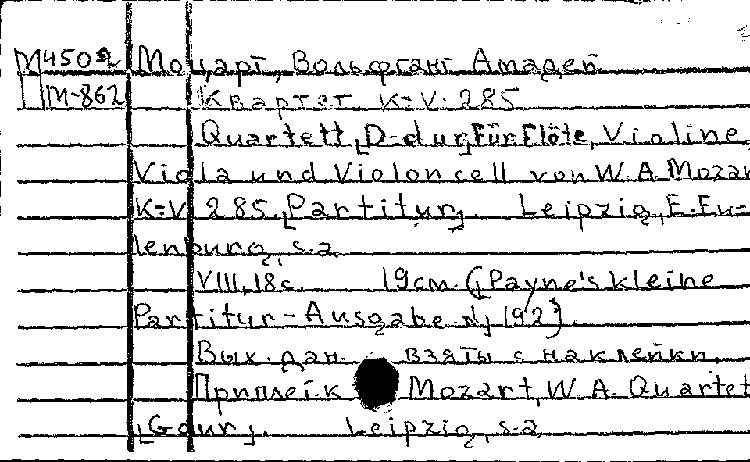 М4502 Моцарт, Вольфганг Амадей
П М-862 Квартет. K=V. 285
Quartett, [D-dur] für Flöte, Violine,
Viola und Violoncell von W. A. Mozar
K=V 285. [Partitur]. Leipzig, E. Eu=
lenburg, s.a.
VIII, 18 с. 19см. ([Payne's kleine
Partitur-Ausgabe N] 192)
Вых. дан. взяты с наклейки.
Приплет. к Mozart, W. A. Quartet
[G dur]. Leipzig, s.a.